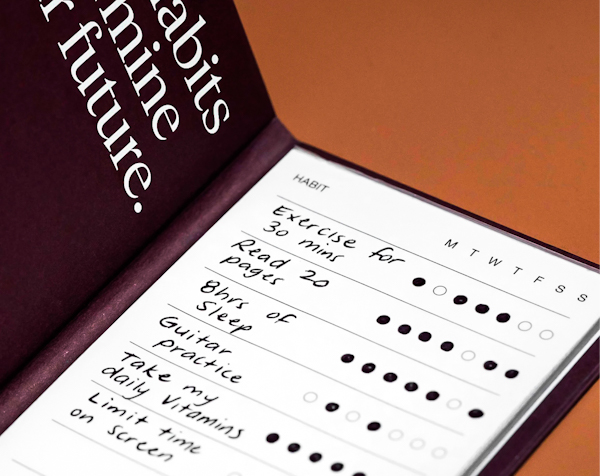 habits
mine
future.
HABIT
M T W T F S S
Exercise for
30 mins
Read 20
pages
8hrs of
Sleep
Guitar
practice
Take my
daily vitamins
Limit time
on screen